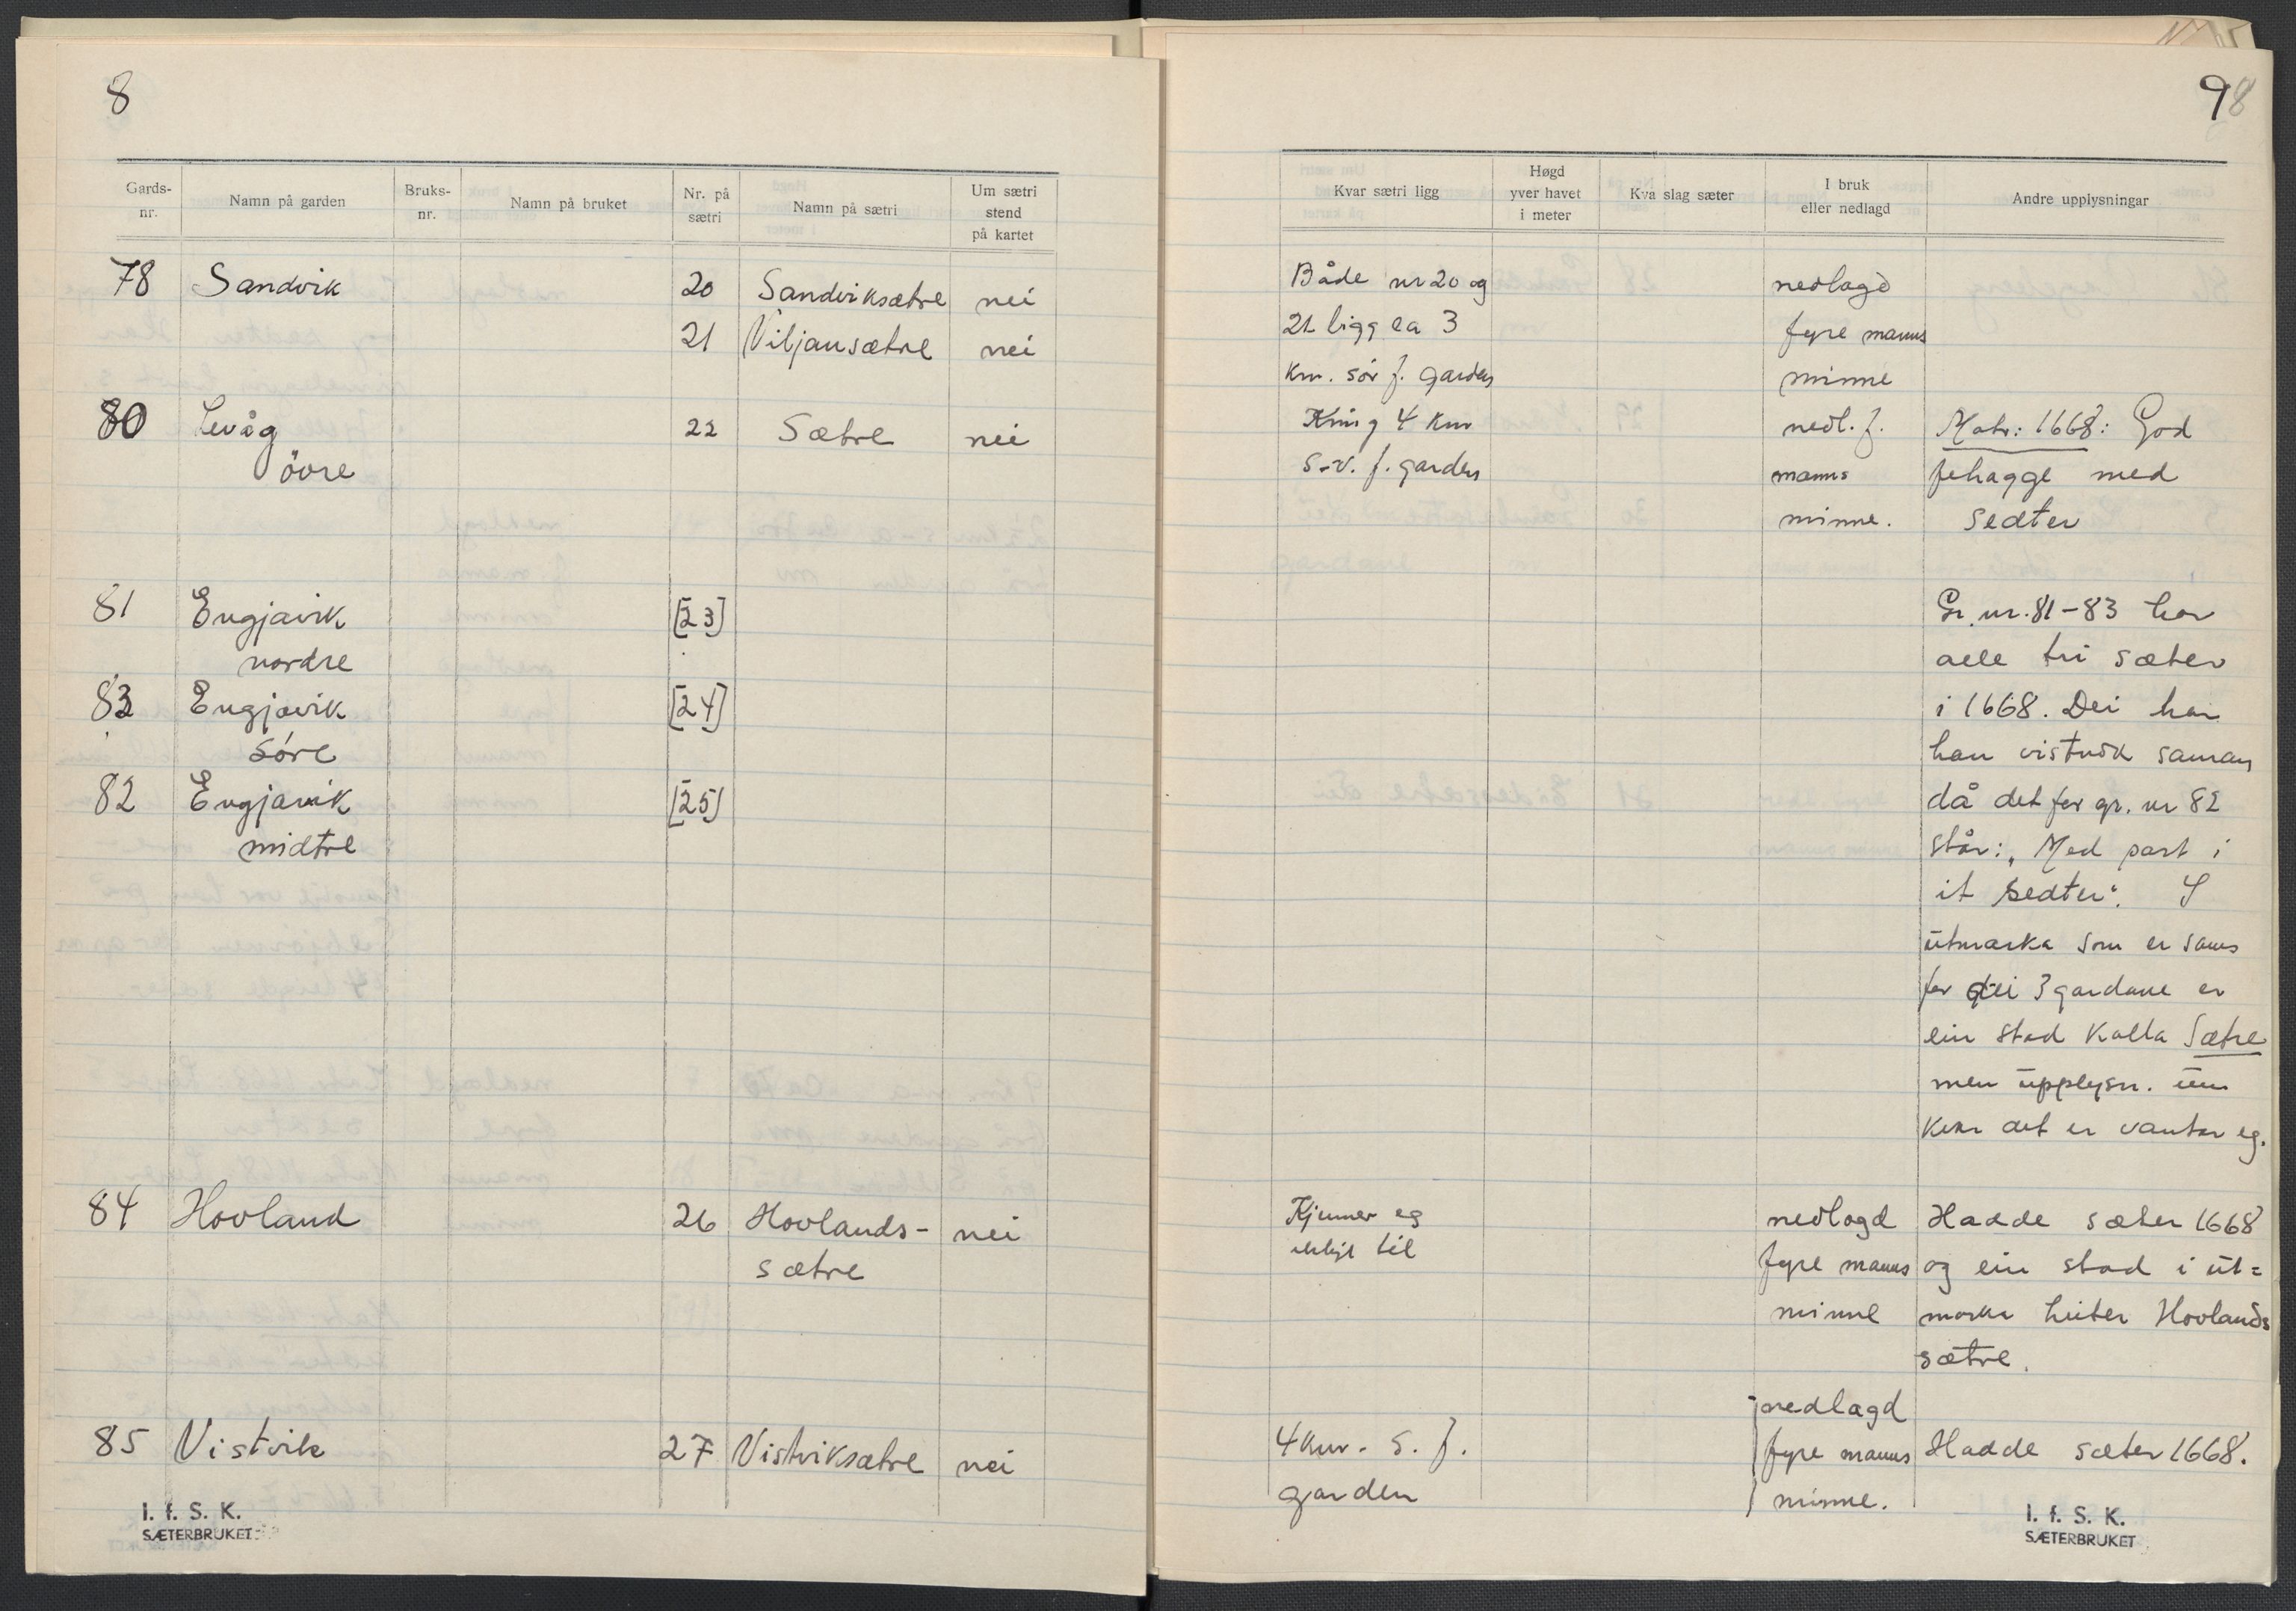 8
Gards-nr. Namn på garden Bruks-nr. Namn på bruket Nr. på sætri Namn på sætri Um sætri stend på kartet
78 Sandvik 20 Sandviksætre nei
21 Viljansætre nei
80 Levåg 22 Sætre nei
övre
81 Engjavik [23]
nordre
83 Engjavik [24]
söre
82 Engjavik [25]
midtre
84 Hovland 26 Hovlands- nei
sætre
85 Vistvik 27 Vistviksætre nei
I. f. S. K.
SÆTERBRUKET
98
Kvar sætri ligg Høgd yver havet i meter Kva slag sæter I bruk eller nedlagd Andre upplysningar
Både nr 20 og nedlagd
21 ligg ca 3 fyre manns
km. sör f. garden minne
Kring 4 km nedl. f. Matr: 1668: God
s-v. f. garden manns fehagge med
minne. sedter
Gr. nr. 81-83 har
alle tri sæter
i 1668. Dei har
han vistnok saman
då det for gr. nr 82
står: "Med part i
it sedter". I
utmarka som er sams
for dei 3 gardane er
ein stad kalla Sætre
men upplysn. um
kvar det er vantar eg.
Kjenner eg nedlagd Hadde sæter 1668
ikkje til fyre manns og ein stad i ut=
minne marka heiter Hovlands
sætre.
nedlagd
4 km. s. f. fyre manns Hadde sæter 1668.
garden minne.
I. f. S. K.
SÆTERBRUKET